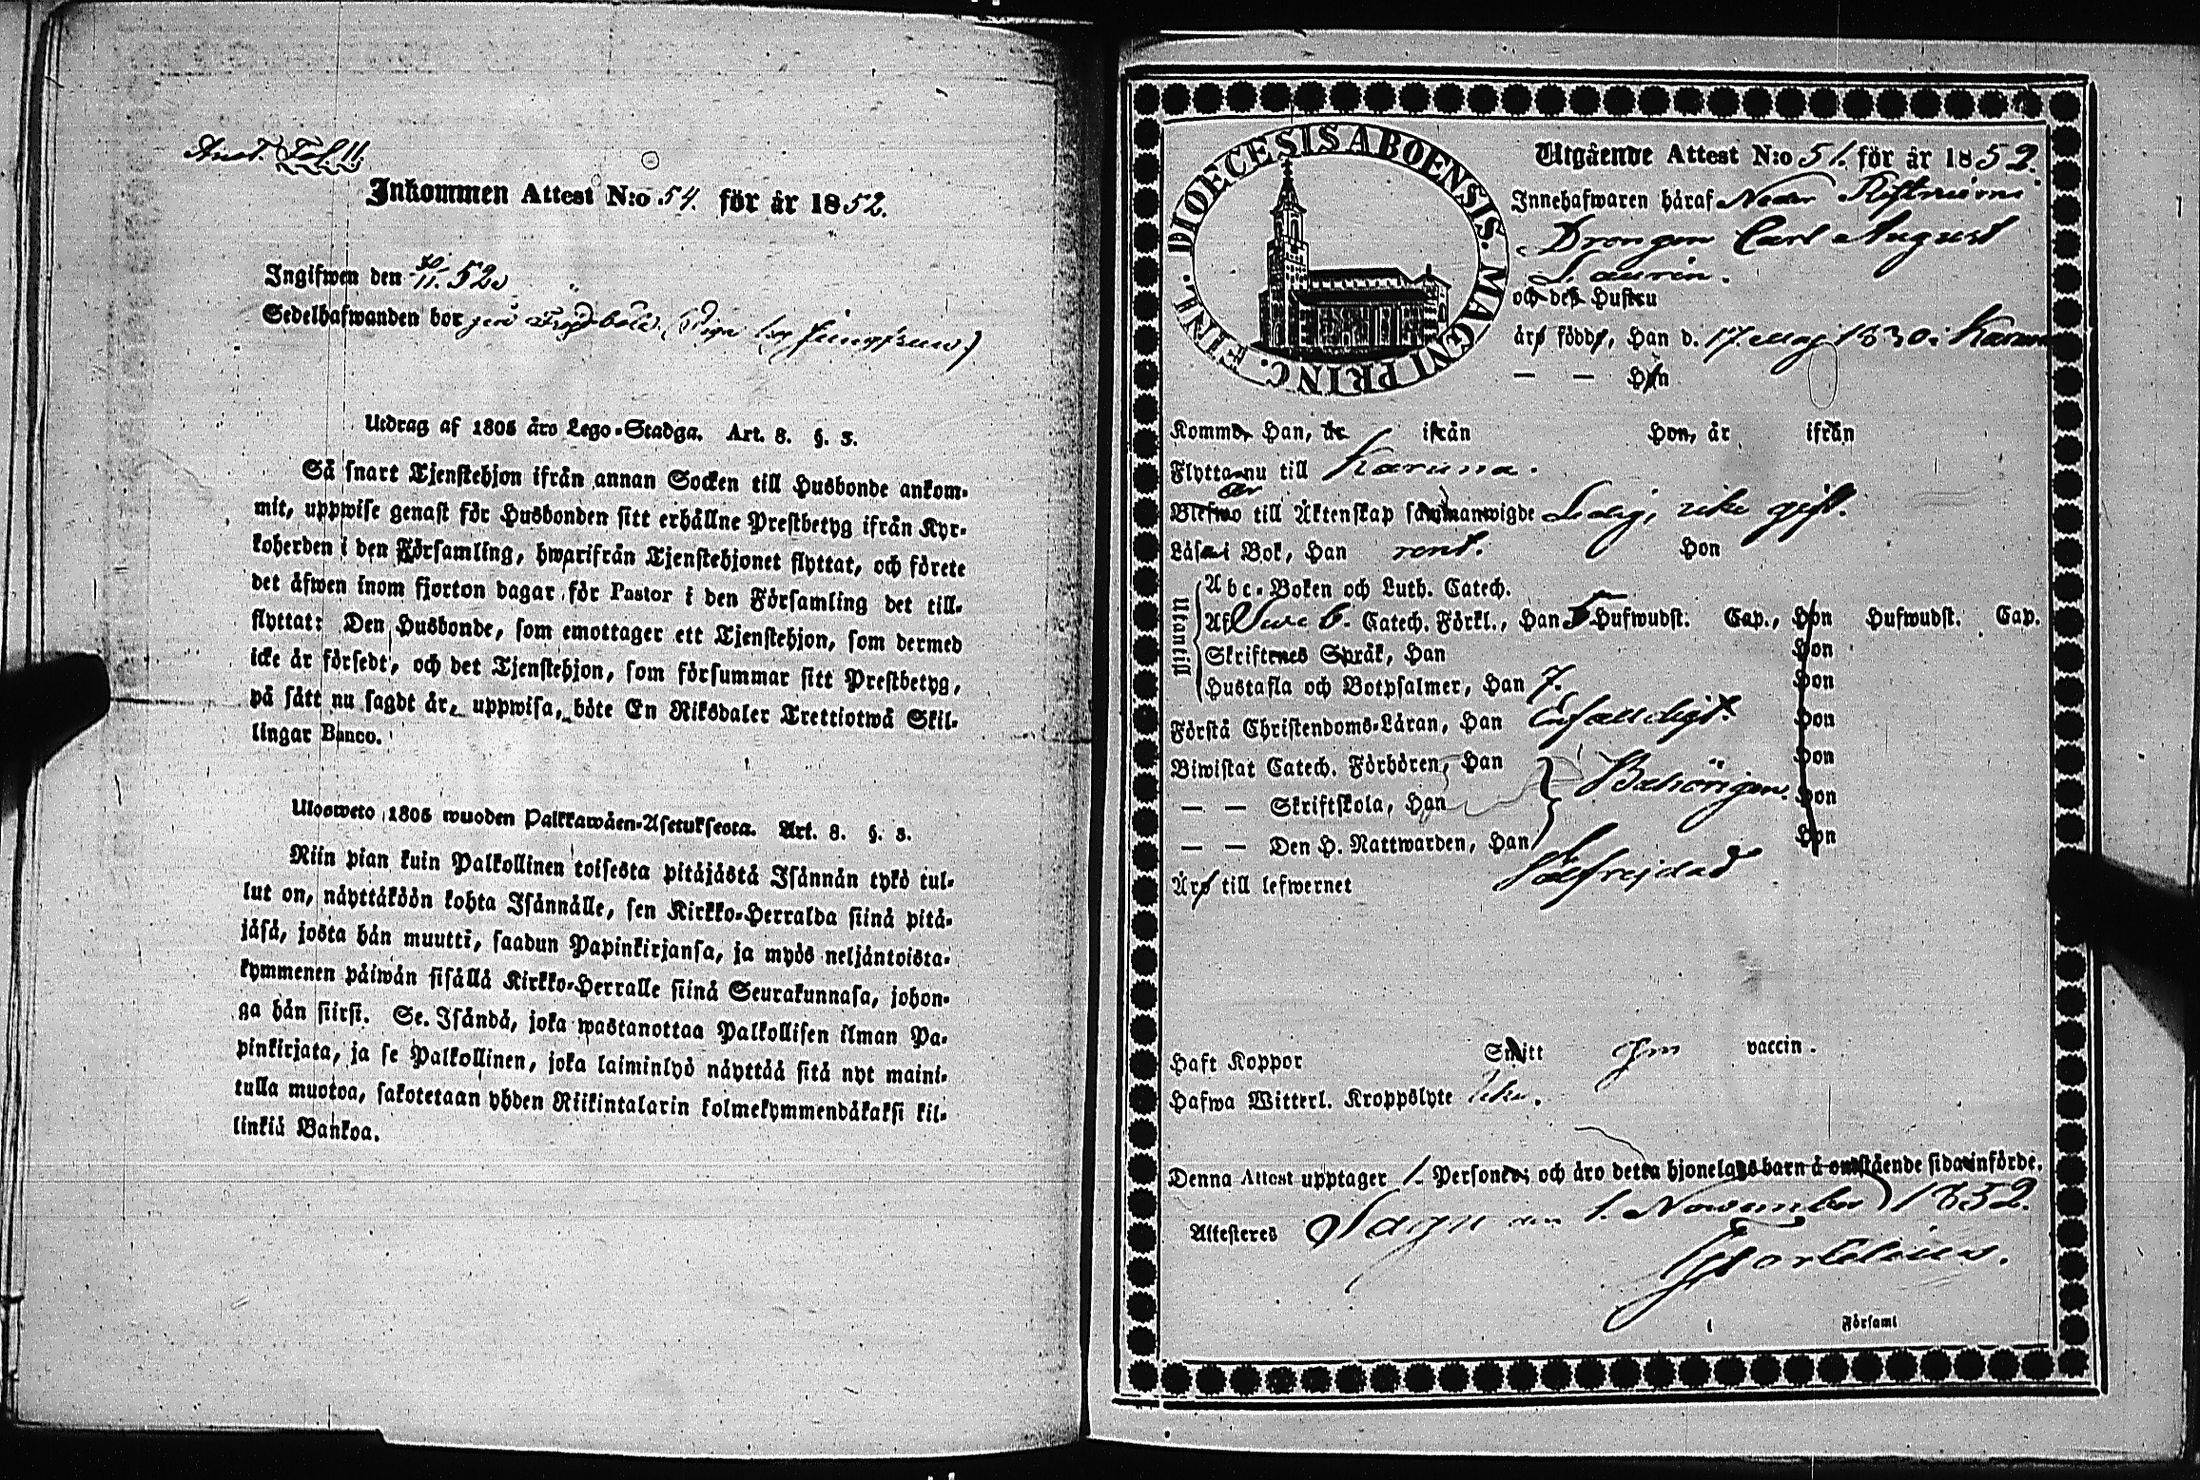 Anst. Fol 11
Inkommen Attest N:o 54. för år 1852.
Ingifwen den 30/11. 52.
Sedelhafwanden bor
Utdrag af 1805 års Lego-Stadga. Art. 8. §. 3.
Så snart Tjenstehjon ifrån annan Socken till Husbonde ankom-
mit, uppwise genast för Husbonden sitt erhållne Prestbetyg ifrån Kyr-
koherden i den Församling, hwarifrån Tjenstehjonet flyttat, och förete
det äfwen inom fjorton dagar för Pastor i den Församling det till-
flyttat: Den Husbonde, som emottager ett Tjenstehjon, som dermed
icke är försedt, och det Tjenstehjon, som försummar sitt Prestbetyg,
på sätt nu sagdt är, uppwisa, böte En Riksdaler Trettiotwå Skil-
lingar Banco.
Ulosweto 1805 wuoden Palkkawäen-Asetuksesta. Art. 8. §. 3.
Niin pian kuin Palkollinen toisesta pitäjästä Isännän tykö tul-
lut on, näyttäköön kohta Isännälle, sen Kirkko-Herralda siinä pitä-
jäsä, josta hän muutti, saadun Papinkirjansa, ja myös neljäntoista-
kymmenen päiwän sisällä Kirkko-Herralle siinä Seurakunnasa, johon-
ga hän siirsi. Se Isändä, joka wastanottaa Palkollisen ilman Pa-
pinkirjata, ja se Palkollinen, joka laiminlyö näyttää sitä nyt maini-
tulla muotoa, sakotetaan yhden Riikintalarin kolmekymmendäkaksi kil-
linkiä Bankoa.
DIOECESIS ABOENSIS. MAGNI PRINC. FINL.
Utgående Attest N:o 51. för år 1852.
Innehafwaren häraf
Drengen Carl August
Laurén.
och deß Hustru
äro födde, Han d. 17 Maj 1830 i Karuna
— — Hon
Kommo, Han, år ifrån Hon, år ifrån
Flytta nu till Karuna.
är
Blefwo till Äktenskap sammanwigde Ledig, icke gift.
Läsa i Bok, Han rent. Hon
Utantill
Abc-Boken och Luth. Catech.
Af Sweb. Catech. Förkl., Han 5 Hufwudst. Cap., Hon Hufwudst. Cap.
Skriftenes Språk, Han Hon
Hustafla och Botpsalmer, Han 7. Hon
Förstå Christendoms-Läran, Han Enfalldigt. Hon
Biwistat Catech. Förhören, Han Hon
— — Skriftskola, Han Behörigen. Hon
— — Den H. Nattwarden, Han Hon
Äro till lefwernet Wälfrejdad
Haft Koppor Smitt Gm vaccin.
Hafwa Witterl. Kroppslyte icke.
Denna Attest upptager 1. Personer; och äro detta hjonelags barn å omstående sida införde.
Attesteres Sagu den 1. November 1852.
i Församl